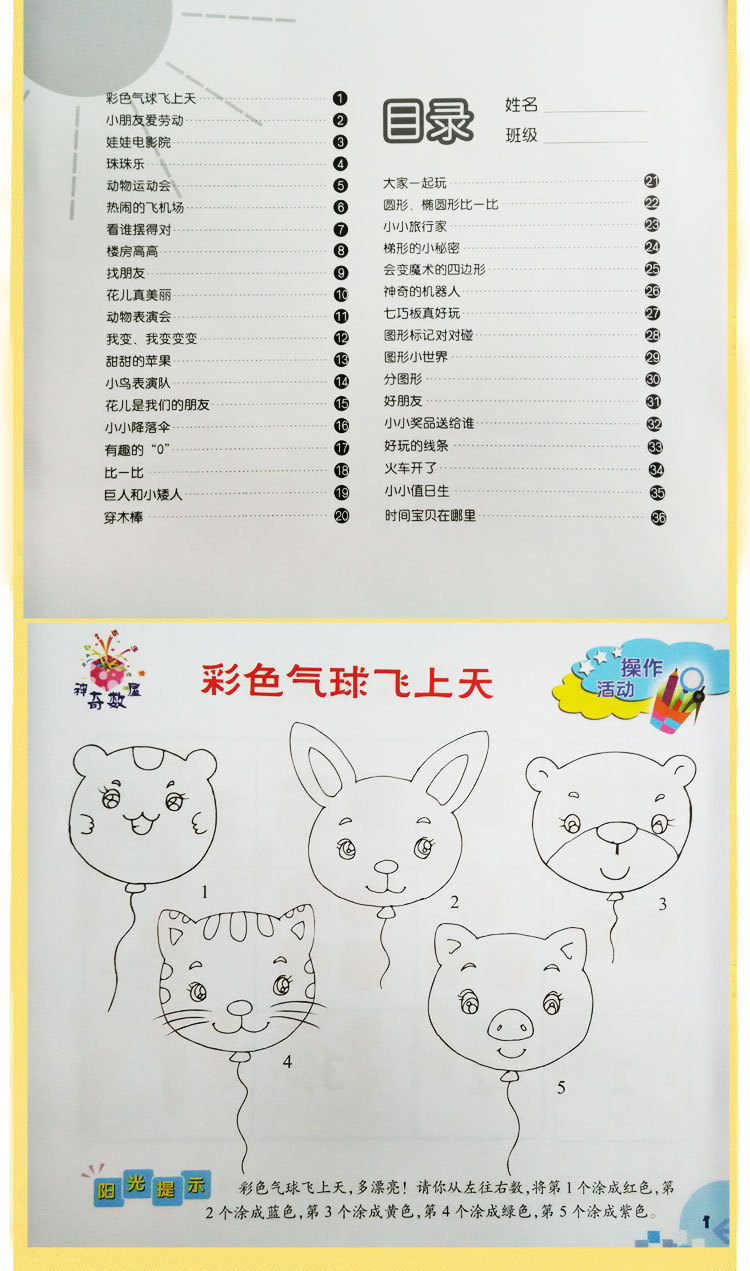 彩色气球飞上天 1
小朋友爱劳动 2
娃娃电影院 3
珠珠乐 4
动物运动会 5
热闹的飞机场 6
看谁摆得对 7
楼房高高 8
找朋友 9
花儿真美丽 10
动物表演会 11
我变、我变变变 12
甜甜的苹果 13
小鸟表演队 14
花儿是我们的朋友 15
小小降落伞 16
有趣的“0” 17
比一比 18
巨人和小矮人 19
穿木棒 20
目录
姓名
班级
大家一起玩 21
圆形、椭圆形比一比 22
小小旅行家 23
梯形的小秘密 24
会变魔术的四边形 25
神奇的机器人 26
七巧板真好玩 27
图形标记对对碰 28
图形小世界 29
分图形 30
好朋友 31
小小奖品送给谁 32
好玩的线条 33
火车开了 34
小小值日生 35
时间宝贝在哪里 36
神奇数屋
彩色气球飞上天
操作
活动
1
2
3
4
5
阳光提示
彩色气球飞上天,多漂亮!请你从左往右数,将第1个涂成红色,第
2个涂成蓝色,第3个涂成黄色,第4个涂成绿色,第5个涂成紫色。
1